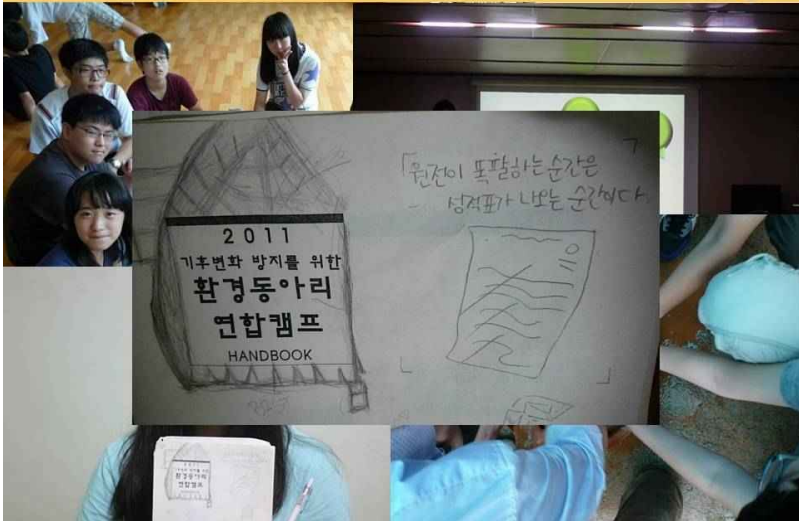 2011
기후변화 방지를 위한
환경동아리
연합캠프
HANDBOOK
「원전이 폭팔하는순간은
성적표가 나오는 순간이다
2011
환경동아리
연합캠프